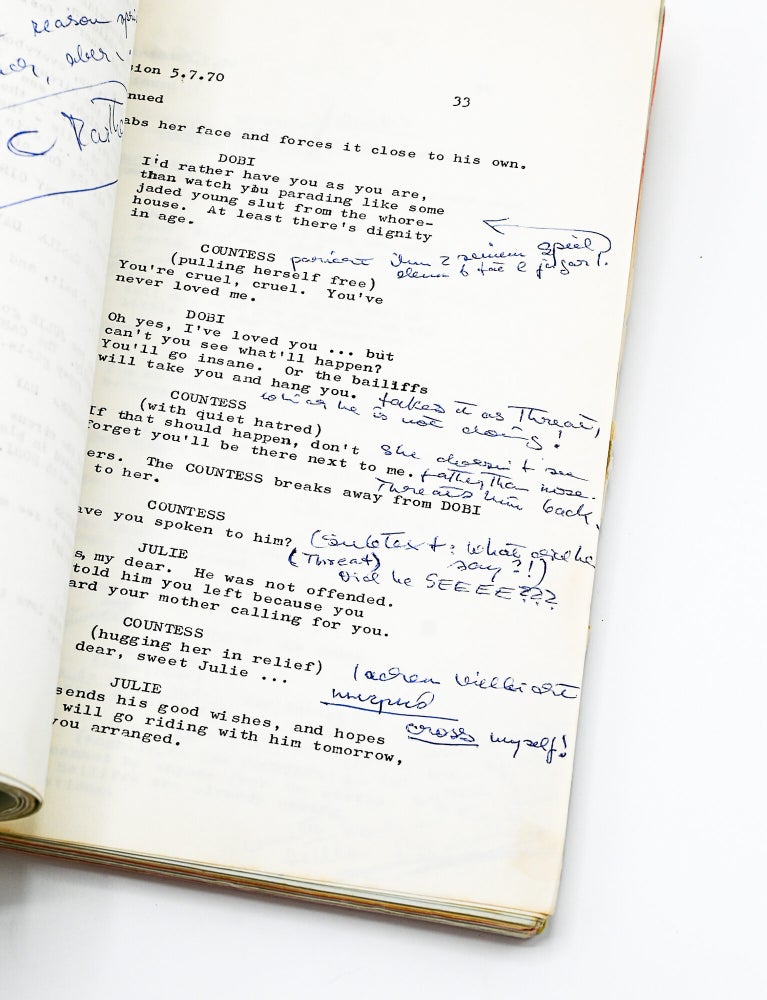 reason
aber
sion 5.7.70
nued
33
abs her face and forces it close to his own.
DOBI
I'd rather have you as you are,
than watch you parading like some
jaded young slut from the whore-
house. At least there's dignity
in age.
COUNTESS
(pulling herself free)
You're cruel, cruel. You've
never loved me.
DOBI
Oh yes, I've loved you ... but
can't you see what'll happen?
You'll go insane. Or the bailiffs
will take you and hang you. takes it as Threat,
which he is not doing!
COUNTESS
(with quiet hatred)
If that should happen, don't she doesn't see
forget you'll be there next to me. father than nose.
Threats him back.
ers. The COUNTESS breaks away from DOBI
to her.
COUNTESS
ave you spoken to him? (Subtext: what did he
say?!)
(Threat)
Did he SEEEE???
JULIE
s, my dear. He was not offended.
told him you left because you
ard your mother calling for you.
COUNTESS
(hugging her in relief)
dear, sweet Julie ... lachen vielleicht
JULIE
sends his good wishes, and hopes cross myself!
will go riding with him tomorrow,
you arranged.